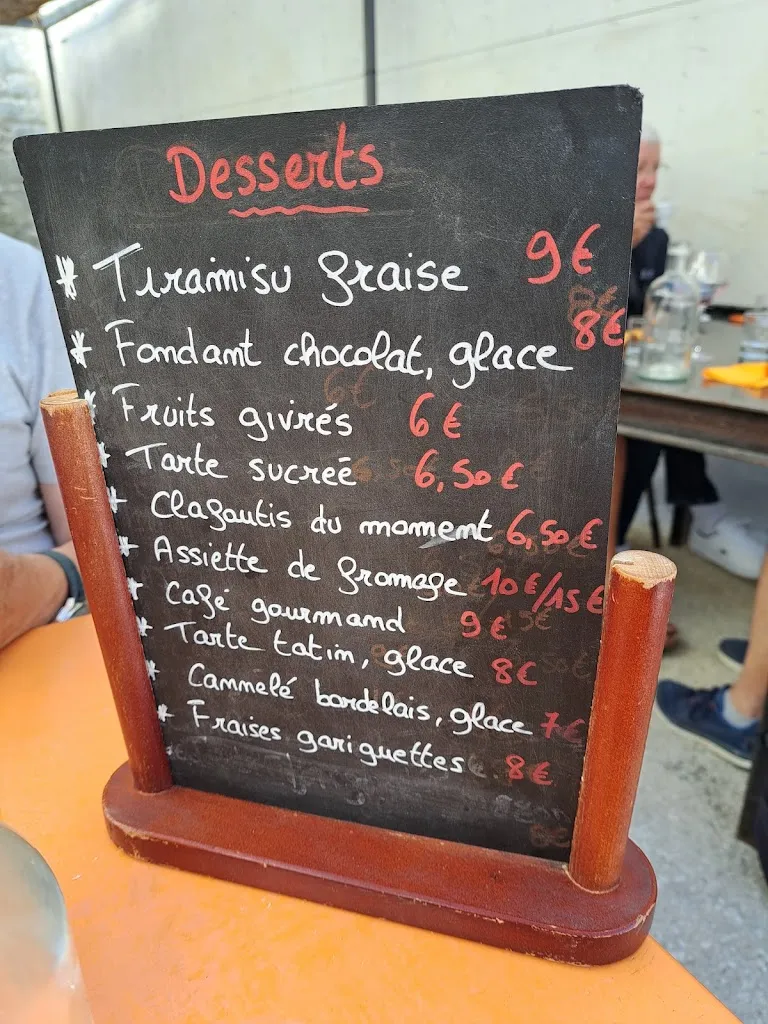 Desserts
* Tiramisu fraise 9€
* Fondant chocolat, glace 8€
* Fruits givrés 6€
* Tarte sucreé 6,50€
* Clafoutis du moment 6,50€
* Assiette de fromage 10€/15€
* Café gourmand 9€
* Tarte tatin, glace 8€
* Cannelé bordelais, glace 7€
* Fraises gariguettes 8€